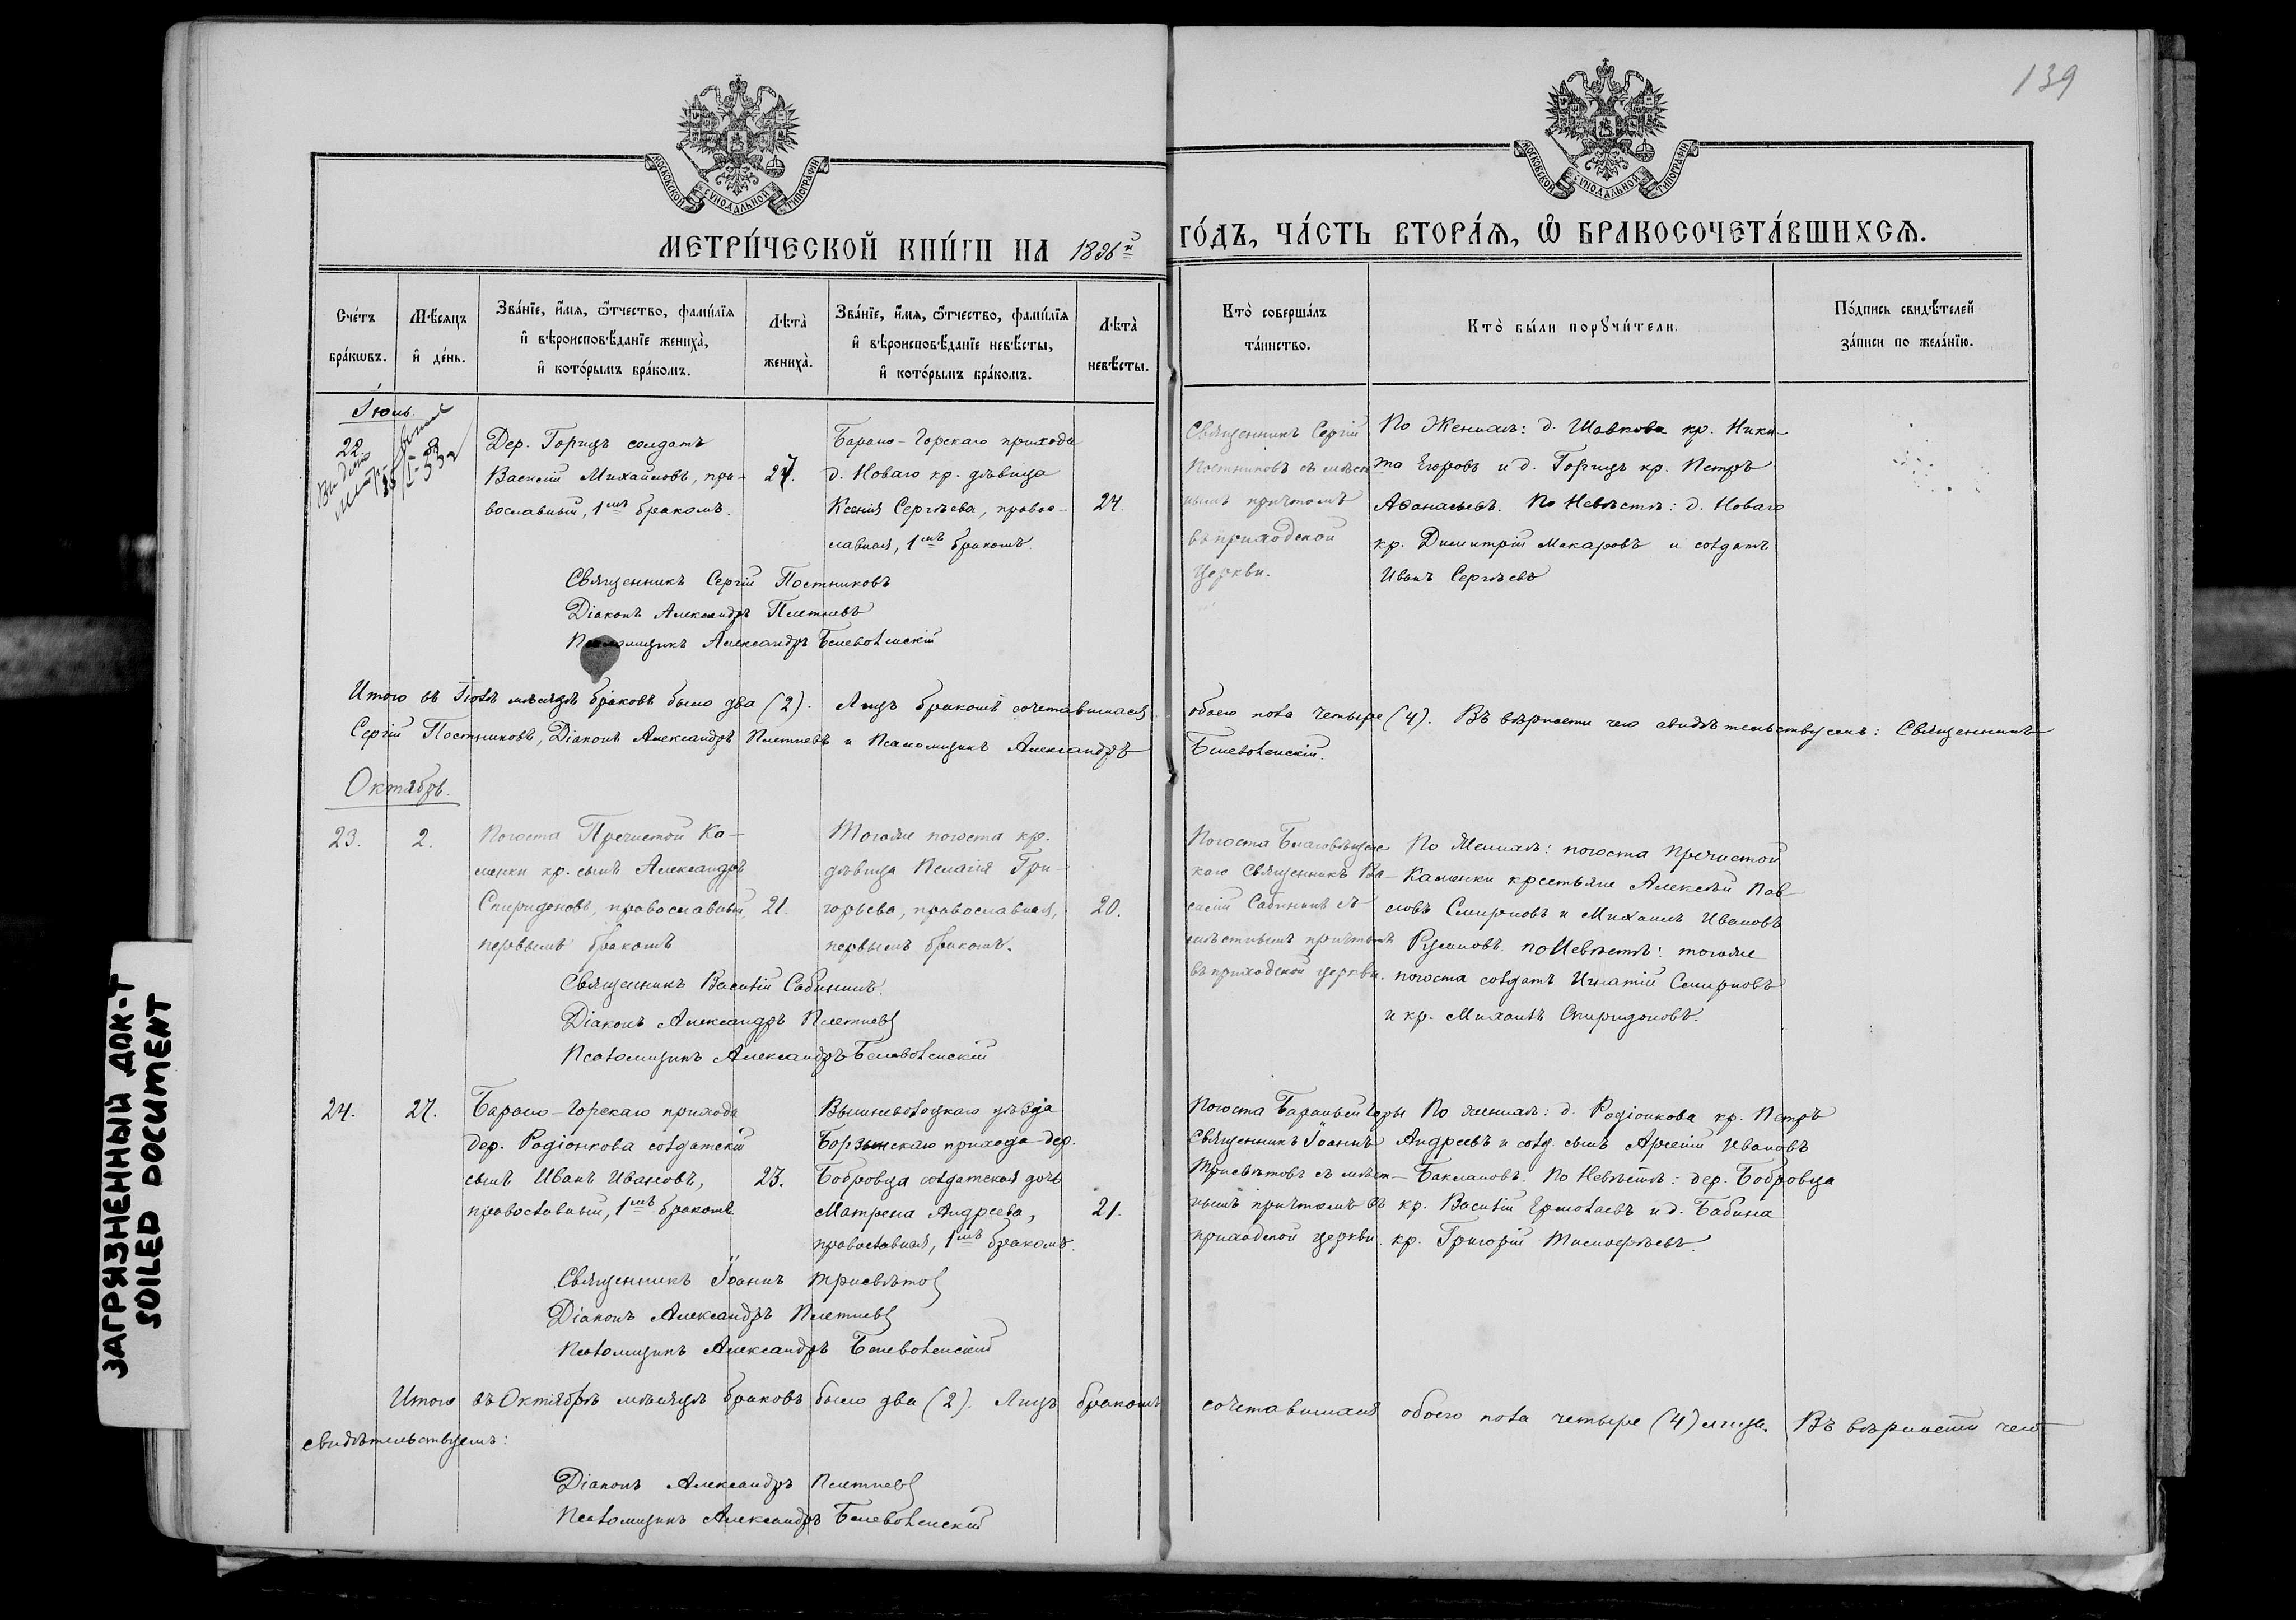 139
МОСКОВСКОЙ СѴНОДАЛЬНОЙ ТИПОГРАФІИ
МОСКОВСКОЙ СѴНОДАЛЬНОЙ ТИПОГРАФІИ
МЕТРИ́ЧЕСКОЙ КНИ́ГИ НА 1896й ГО́ДЪ, ЧА́СТЬ ВТОРА́Ѧ, Ѡ҆ БРАКОСОЧЕТА́ВШИХСѦ.
Сче́тъ
бра́кѡвъ.
Мѣ́сяцъ
и҆ де́нь.
Зва́нїе, и҆́мя, ѻ҆́тчество, фами́лїя
и҆ вѣроисповѣ́данїе жениха̀,
и҆ кото́рымъ бра́комъ.
Лѣта̀
жениха̀.
Зва́нїе, и҆́мя, ѻ҆́тчество, фами́лїя
и҆ вѣроисповѣ́данїе невѣ́сты,
и҆ кото́рымъ бра́комъ.
Лѣта̀
невѣ́сты.
Кто̀ соверша́лъ
та́инство.
Кто̀ бы́ли порꙋчи́тели.
По́дпись свидѣ́телей
за́писи по жела́нїю.
Іюль.
22.
8
Дер. Горицъ солдатъ
Василій Михайловъ, пра-
вославный, 1мъ бракомъ.
27.
Барано-Горскаго прихода
д. Новаго кр. дѣвица
Ксенія Сергѣева, право-
славная, 1мъ бракомъ.
24.
Священникъ Сергій
Постниковъ съ мѣст-
нымъ причтомъ
въ приходской
Церкви.
По Женихѣ: д. Шавкова кр. Ники-
та Егоровъ и д. Горицъ кр. Петръ
Аѳанасьевъ. По Невѣстѣ: д. Новаго
кр. Димитрій Макаровъ и солдатъ
Иванъ Сергѣевъ
Священникъ Сергій Постниковъ
Діаконъ Александръ Плетневъ
Псаломщикъ Александръ
Итого въ Іюлѣ мѣсяцѣ браковъ было два (2). Лицъ бракомъ сочетавшихся обоего пола четыре (4). Въ вѣрности чего свидѣтельствуемъ: Священникъ
Сергій Постниковъ, Діаконъ Александръ Плетневъ и Псаломщикъ Александръ
Октябрь.
23.
2.
Погоста Пречистой Ка-
менки кр. сынъ Александръ
Спиридоновъ, православный,
первымъ бракомъ
21.
Тогоже погоста кр.
дѣвица Пелагія Гри-
горьева, православная,
первымъ бракомъ.
20.
Погоста Благовѣщенс-
каго Священникъ Ва-
силій Сабининъ съ
мѣстнымъ причтомъ
въ приходской церкви.
По Женихѣ: погоста Пречистой
Каменки крестьяне Алексѣй Пав-
ловъ Смирновъ и Михаилъ Ивановъ
Русановъ. По Невѣстѣ: тогоже
погоста солдатъ Игнатій Смирновъ
и кр. Михаилъ Спиридоновъ.
Священникъ Василій Сабининъ.
Діаконъ Александръ Плетневъ
Псаломщикъ Александръ
24.
27.
Барано-Горскаго прихода
дер. Родіонкова солдатскій
сынъ Иванъ Ивановъ,
православный, 1мъ бракомъ
23.
Вышневолоцкаго уѣзда
Борзынскаго прихода дер.
Бобровца солдатская дочь
Матрена Андреева,
православная, 1мъ бракомъ.
21.
Погоста Бараньей Горы
Священникъ Іоаннъ
Трисвѣтовъ съ мѣст-
нымъ причтомъ въ
приходской церкви.
По женихѣ: д. Родіонкова кр. Петръ
Андреевъ и солд. сынъ Арсеній Ивановъ
Баклановъ. По Невѣстѣ: дер. Бобровца
кр. Василій Ермолаевъ и д. Бабина
кр. Григорій Тимоѳѣевъ.
Священникъ Іоаннъ Трисвѣтовъ
Діаконъ Александръ Плетневъ
Псаломщикъ Александръ
Итого въ Октябрѣ мѣсяцѣ браковъ было два (2). Лицъ бракомъ сочетавшихся обоего пола четыре (4) лица. Въ вѣрности чего
свидѣтельствуемъ:
Діаконъ Александръ Плетневъ
Псаломщикъ Александръ
ЗАГРЯЗНЕННЫЙ ДОК-Т
SOILED DOCUMENT